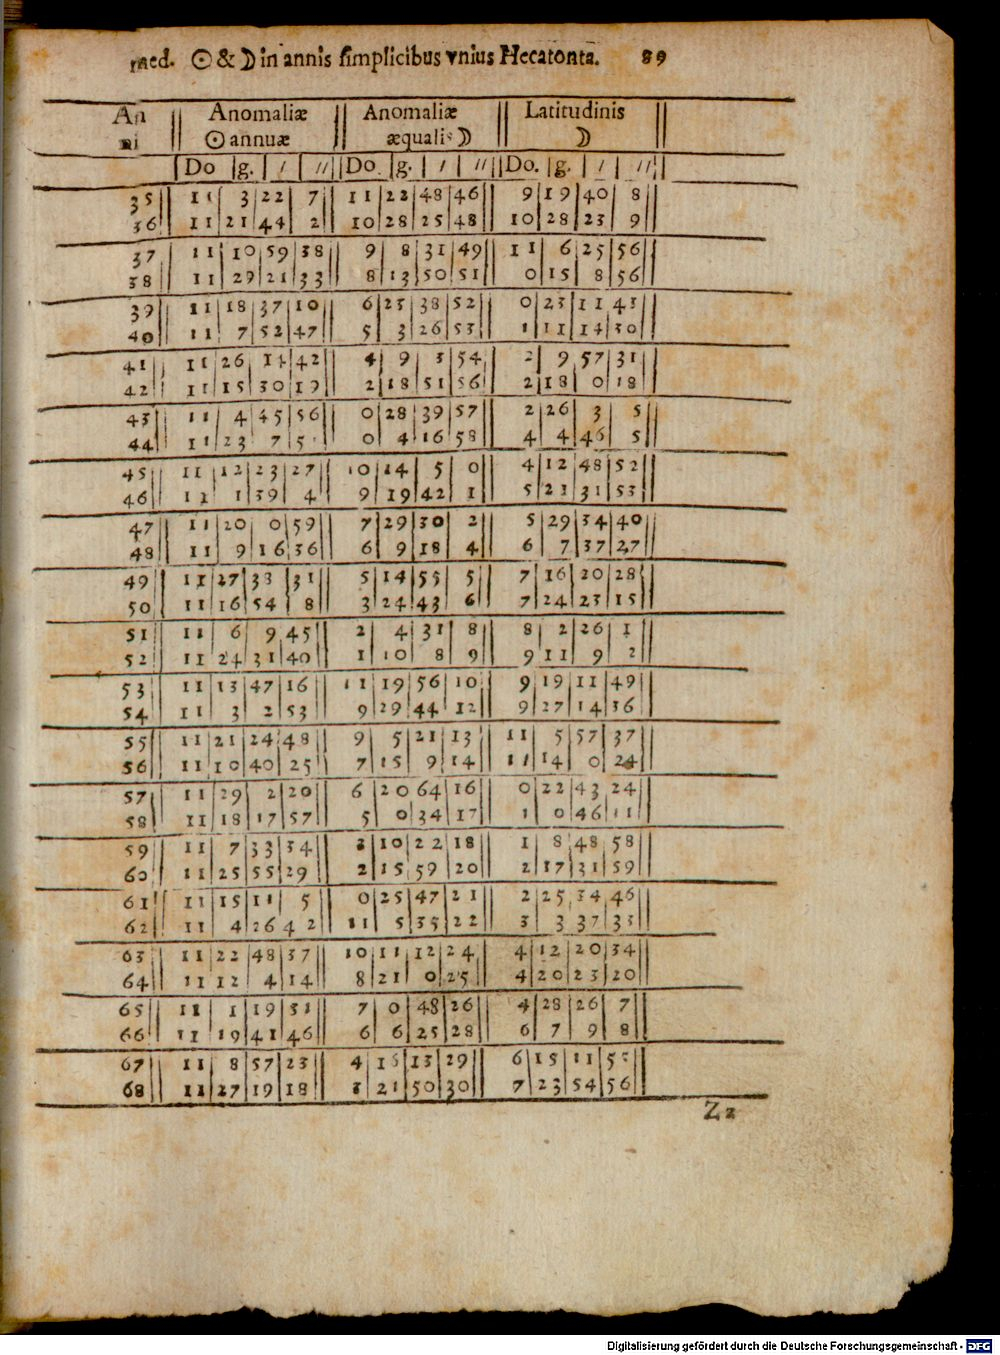 med. ☉ & ☽ in annis simplicibus vnius Hecatonta. 89
An Anomaliæ Anomaliæ Latitudinis
ni ☉ annuæ æqualis ☽ ☽
Do g. / // Do g. / // Do. g. / //
35 11 3 22 7 11 22 48 46 9 19 40 8
36 11 21 44 2 10 28 25 48 10 28 23 9
37 11 10 59 38 9 8 31 49 11 6 25 56
38 11 29 21 33 8 13 50 51 0 15 8 56
39 11 18 37 10 6 23 38 52 0 23 11 43
40 11 7 52 47 5 3 26 53 1 11 14 30
41 11 26 14 42 4 9 3 54 2 9 57 31
42 11 15 30 19 2 18 51 56 2 18 0 18
43 11 4 45 56 0 28 39 57 2 26 3 5
44 11 23 7 5 0 4 16 58 4 4 46 5
45 11 12 23 27 10 14 5 0 4 12 48 52
46 11 1 39 4 9 19 42 1 5 21 31 53
47 11 20 0 59 7 29 30 2 5 29 34 40
48 11 9 16 36 6 9 18 4 6 7 37 27
49 11 27 38 31 5 14 55 5 7 16 20 28
50 11 16 54 8 3 24 43 6 7 24 23 15
51 11 6 9 45 2 4 31 8 8 2 26 1
52 11 24 31 40 1 10 8 9 9 11 9 2
53 11 13 47 16 11 19 56 10 9 19 11 49
54 11 3 2 53 9 29 44 12 9 27 14 36
55 11 21 24 48 9 5 21 13 11 5 57 37
56 11 10 40 25 7 15 9 14 11 14 0 24
57 11 29 2 20 6 20 64 16 0 22 43 24
58 11 18 17 57 5 0 34 17 1 0 46 11
59 11 7 33 34 3 10 22 18 1 8 48 58
60 11 25 55 29 2 15 59 20 2 17 31 59
61 11 15 11 5 0 25 47 21 2 25 34 46
62 11 4 26 42 11 5 35 22 3 3 37 33
63 11 22 48 37 10 11 12 24 4 12 20 34
64 11 12 4 14 8 21 0 25 4 20 23 20
65 11 1 19 51 7 0 48 26 4 28 26 7
66 11 19 41 46 6 6 25 28 6 7 9 8
67 11 8 57 23 4 16 13 29 6 15 11 55
68 11 27 19 18 3 21 50 30 7 23 54 56
Z2
Digitalisierung gefördert durch die Deutsche Forschungsgemeinschaft - DFG